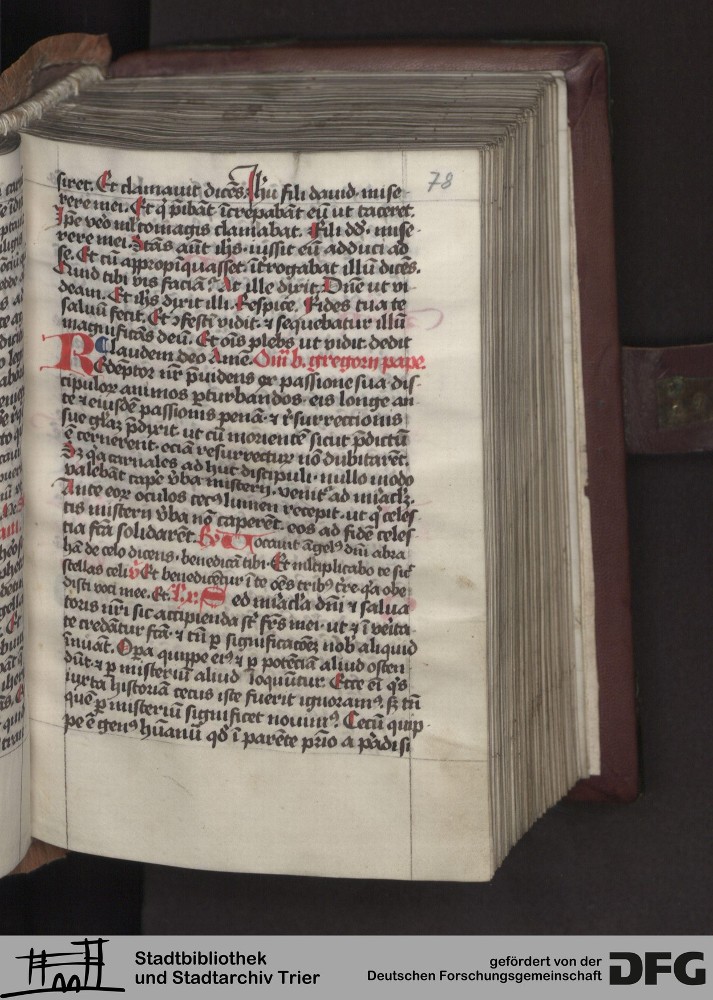 78
siret. Et clamauit dicēs. Ihū fili dauid mise-
rere mei. Et q̄ p̄ibāt īcrepabāt eū ut taceret.
Ipe veo ml'tomagis clamabat. Fili dd. mise-
rere mei. Stās aūt ihs. iussit eū adduci ad
se. Et cū appropīquasset. ītrogabat illū dicēs.
Quid tibi vis faciā? At ille dixit. Dn̄e ut vi
deam. Et ihs dixit illi. Respice. Fides tua te
saluū fecit. Et ɔfestī vidit. ⁊ sequebatur illū
magnificās deū. Et oīs plebs ut vidit. dedit
laudem deo Amē. Om̄ b. gregorii pape.
Redēptor nr̄ p̄uidens ex passione sua dis-
cipulor animos p̄turbandos. eis longe an
te ⁊ eiusdē passionis penā. ⁊ r̄surrectionis
sue glaꝫ p̄dixit. ut cū morientē sicut p̄dictū
ē cernerent. eciā resurrecturū nō dubitarēt.
Sꝫ q̄a carnales ad huc discipuli. nullo modo
valebāt cape v̄ba misterii. venit' ad mirac'lꝫ.
Ante eoꝝ oculos cecꝰ lumen recepit. ut q' celes
tis misterii v̄ba nō caperēt. eos ad fidē celes
tia fc̄a solidarēt. Ry Vocauit āgelꝰ dn̄i abra
hā de celo dicens. benedicā tibi. Et ml'tiplicabo te sic'
stellas celi v̄ Et benedicētur ī te oēs tribꝰ t̄re q̄a obe
disti voci mee. Et. Lc̄. Sed mirac'la dn̄i ⁊ salua
toris nr̄i sic accipienda st' fr̄s mei. ut ⁊ ī veita
te credātur fc̄a. ⁊ tn̄ p significacoēꝫ nob' aliquid
innuāt. Opa quippe eiꝰ ⁊ p potēciā aliud osten
dūt. ⁊ p misteriū aliud loquūtur. Ecce eī q's
iuxta historiā cecus iste fuerit ignoramꝰ. sꝫ tn̄
quē p misteriū significet nouimꝰ. Cecū quip
pe ē genꝰ hūanū qd' ī parēte pr̄io a p̄adisi
Stadtbibliothek
und Stadtarchiv Trier
gefördert von der
Deutschen Forschungsgemeinschaft
DFG